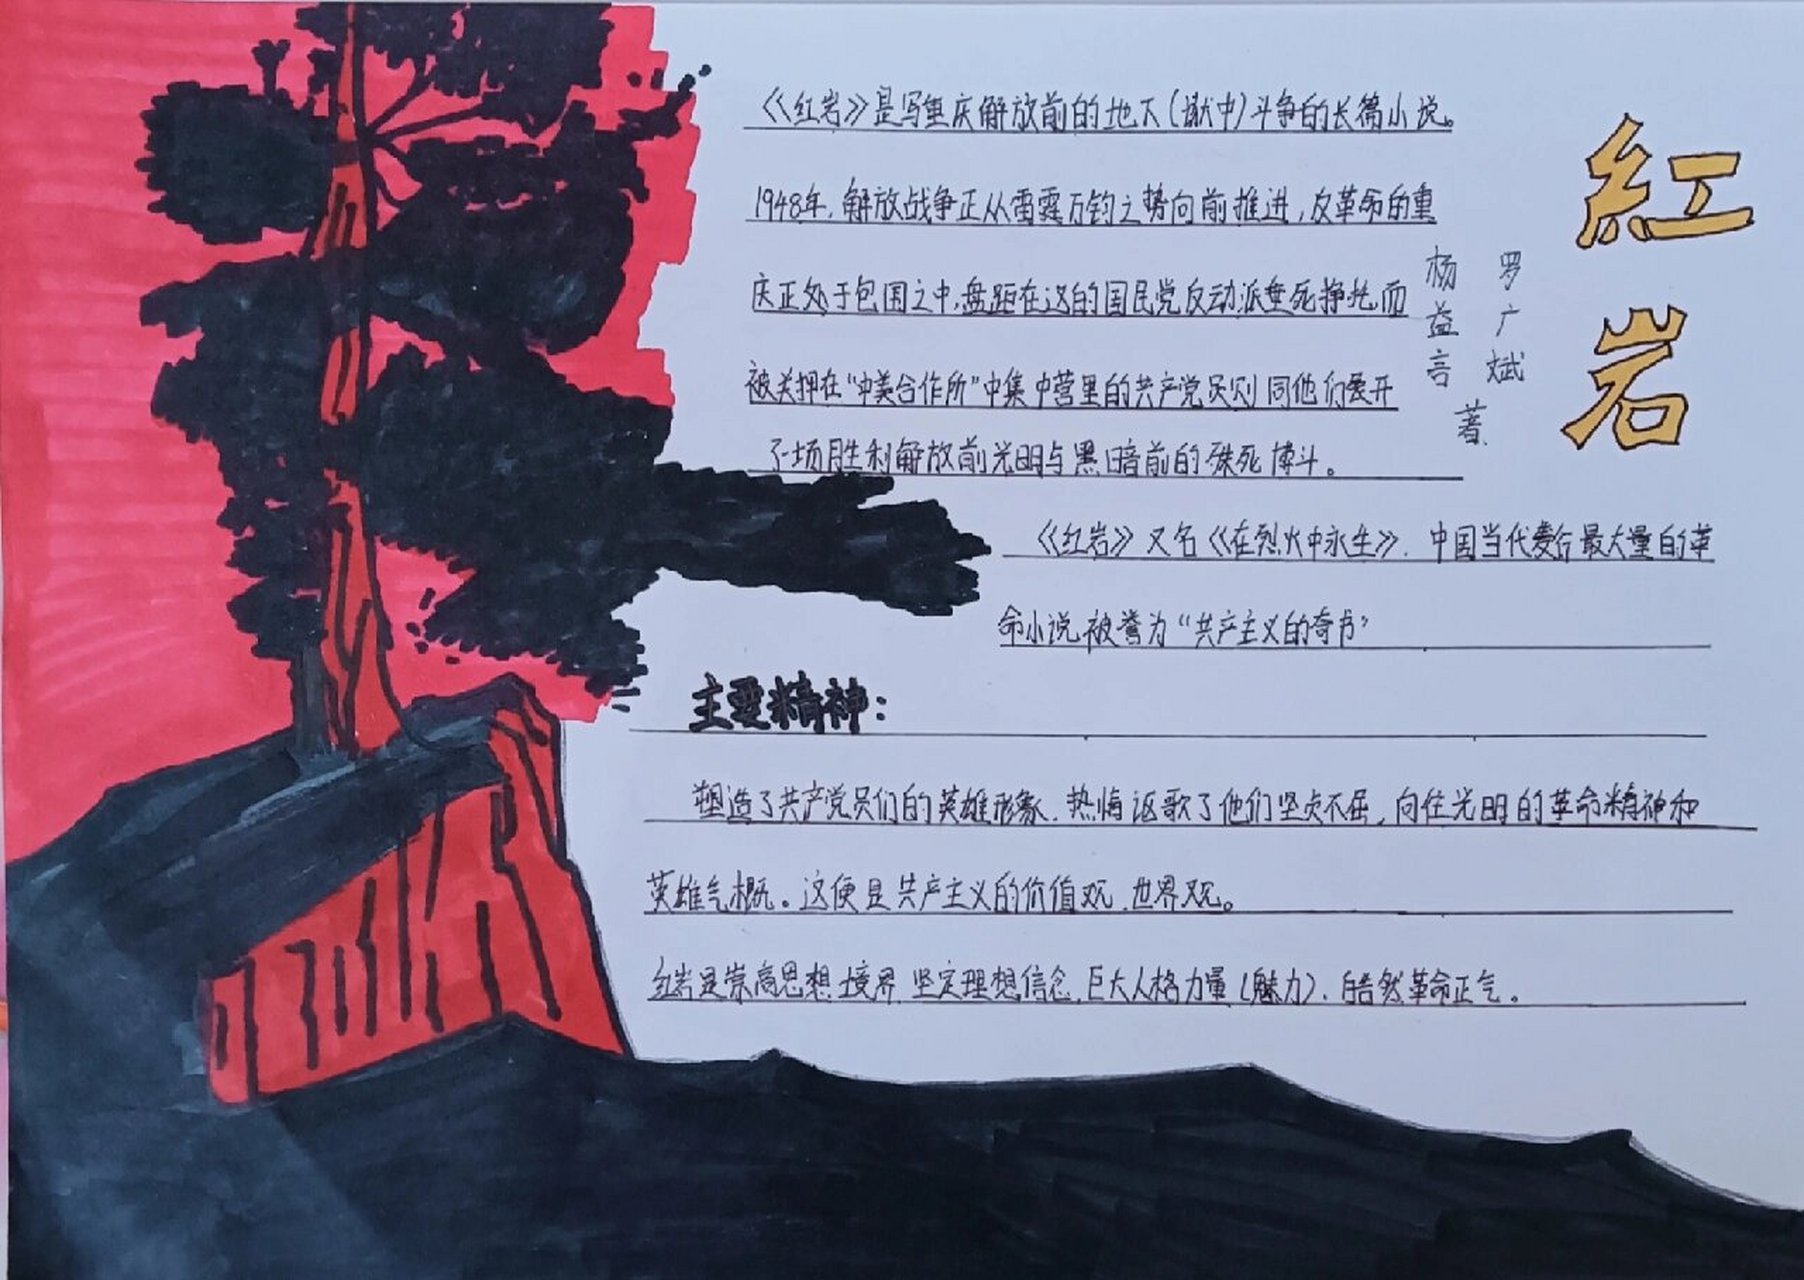 紅岩
罗广斌
杨益言
著
《红岩》是写重庆解放前的地下(狱中)斗争的长篇小说。
1948年,解放战争正从雷霆万钧之势向前推进,反革命的重
庆正处于包围之中,盘距在这的国民党反动派垂死挣扎,而
被关押在“中美合作所”中集中营里的共产党员则同他们展开
了一场胜利解放前光明与黑暗前的殊死博斗。
《红岩》又名《在烈火中永生》.中国当代发行最大量的革
命小说,被誉为“共产主义的奇书”
主要精神:
塑造了共产党员们的英雄形象.热情讴歌了他们坚贞不屈,向往光明的革命精神和
英雄气概。这便是共产主义的价值观.世界观。
红岩是崇高思想境界.坚定理想信念.巨大人格力量(魅力).浩然革命正气。